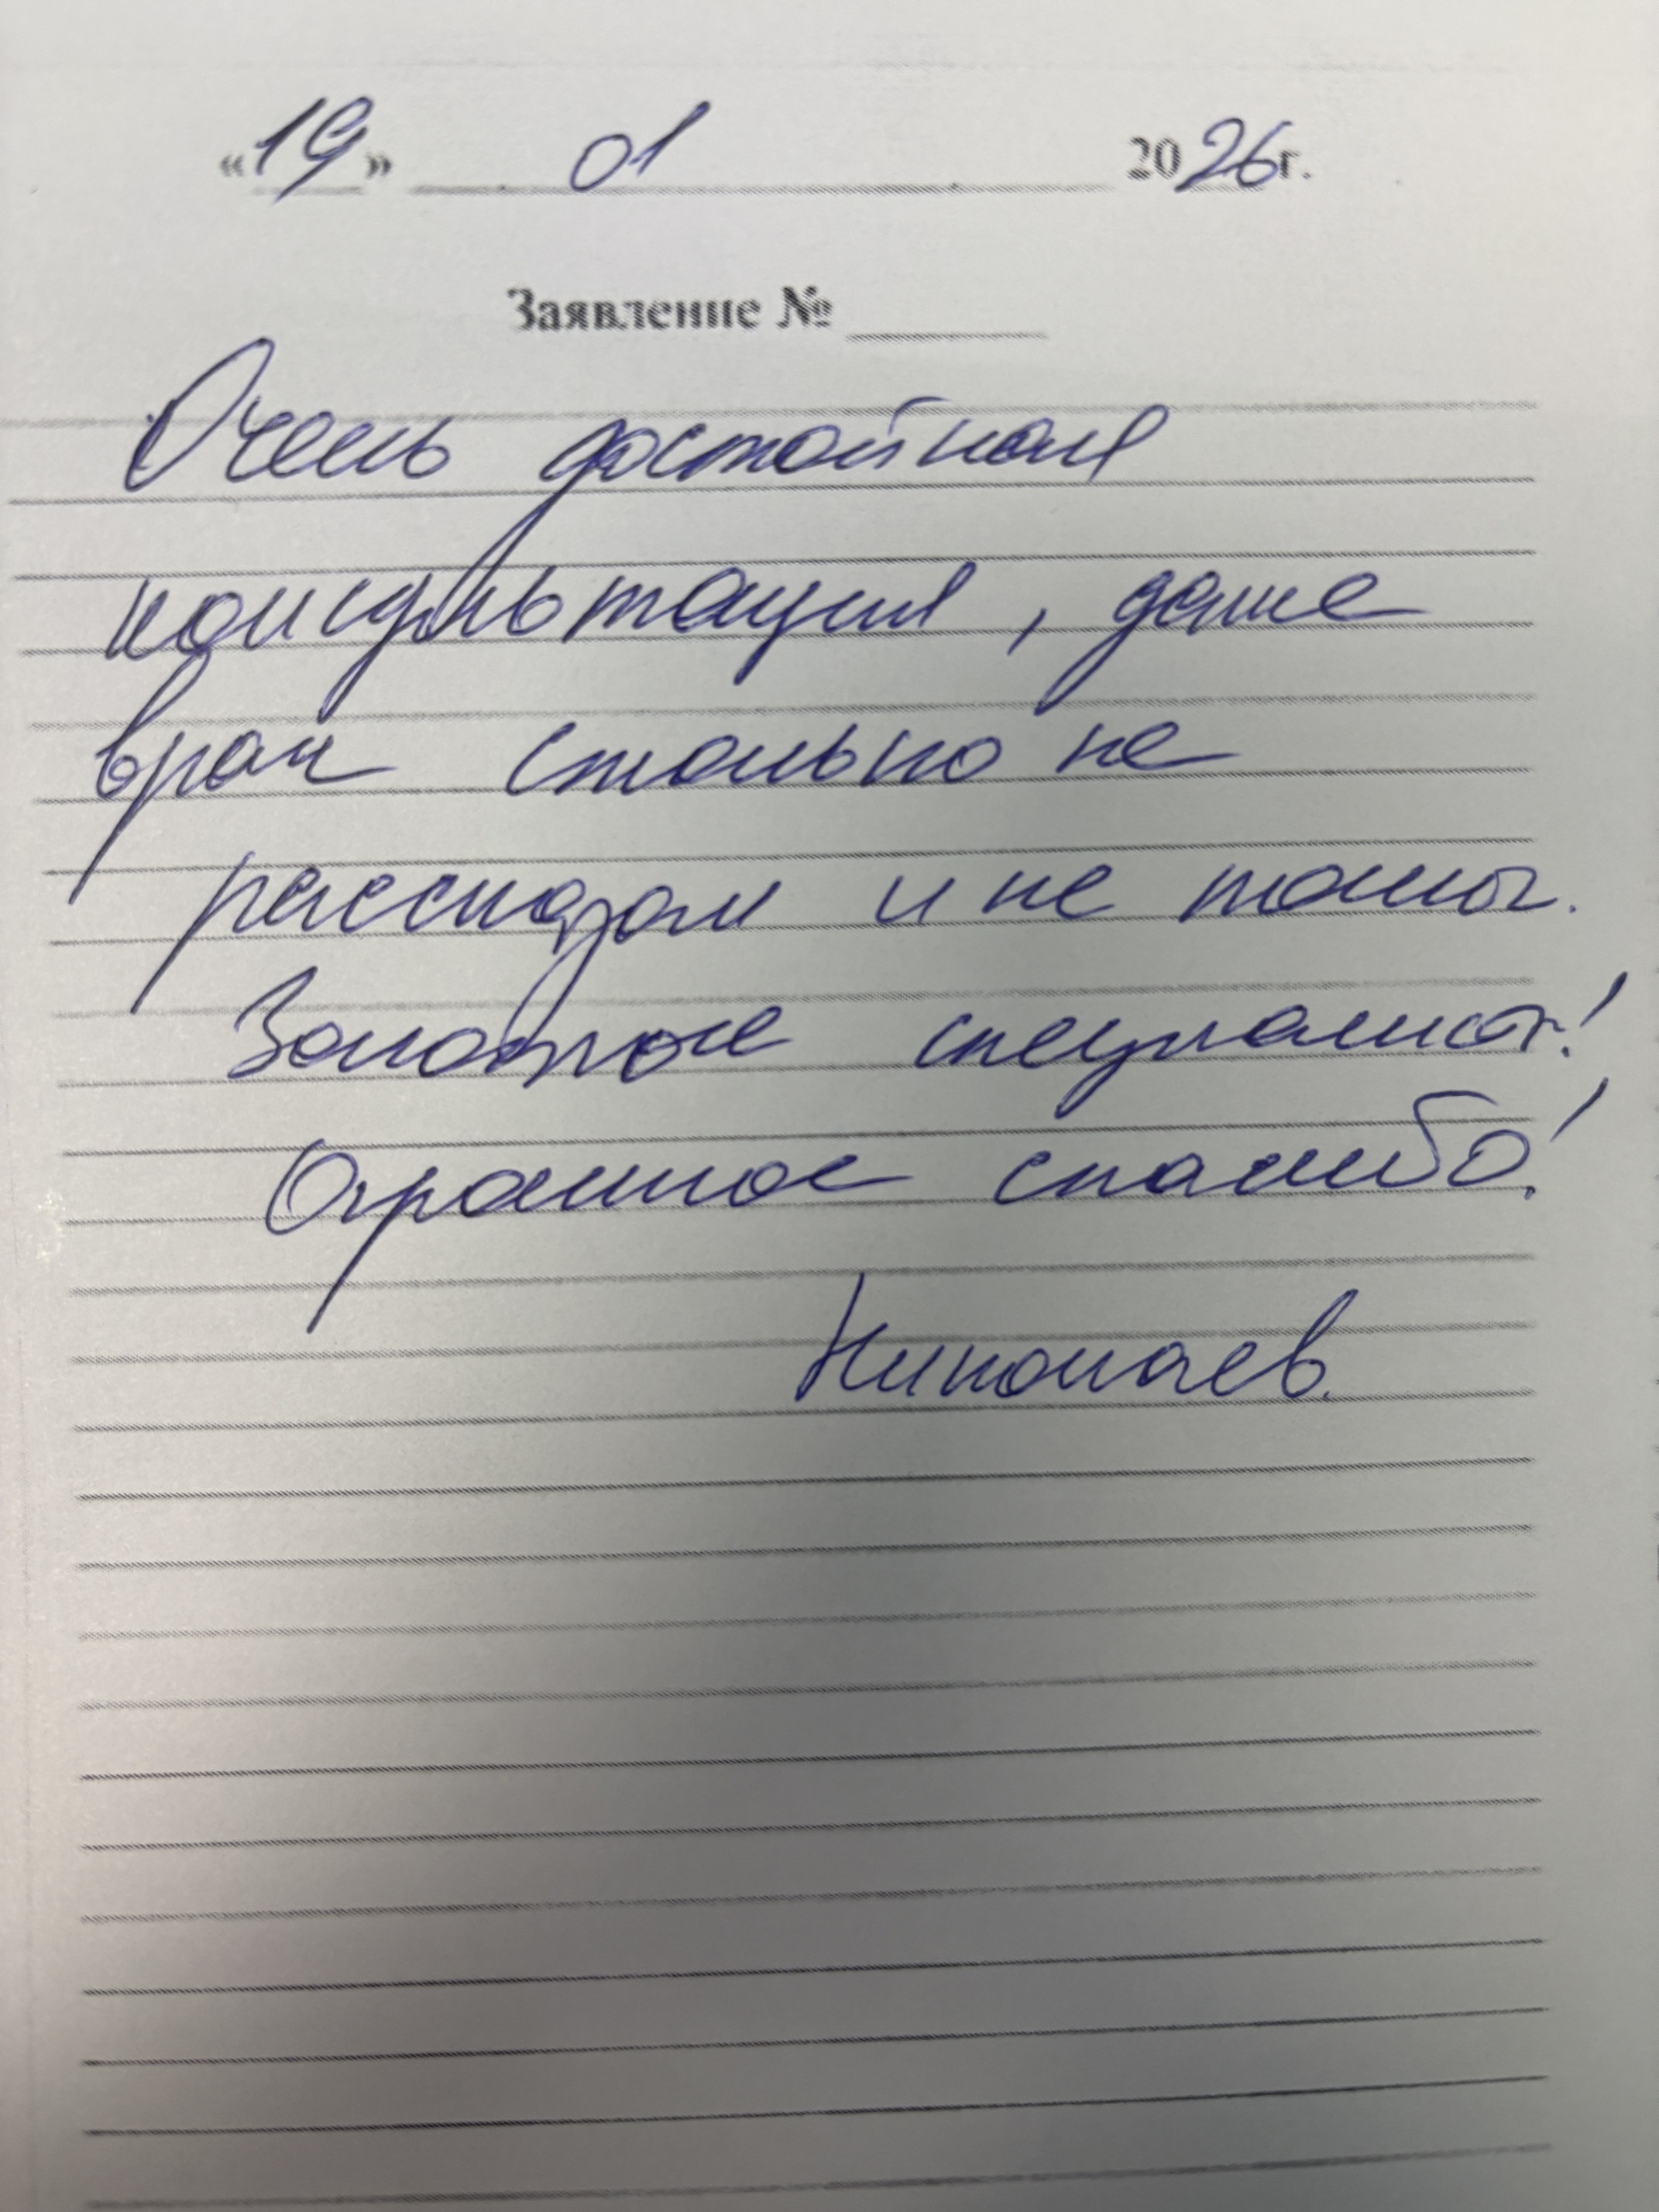 «19» 01 2026г.
Заявление №
Очень достойная
консультация, даже
врач столько не
рассказал и не помог.
Золотые специалист!
Огромное спасибо!
Николаев.